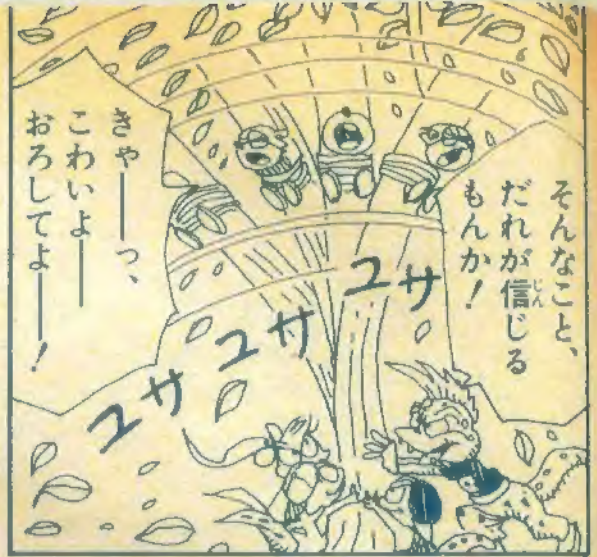 そんなこと、
だれが信じる
もんか!
じん
ユサ
ユサ
ユサ
きゃーーっ、
こわいよーー
おろしてよーー!